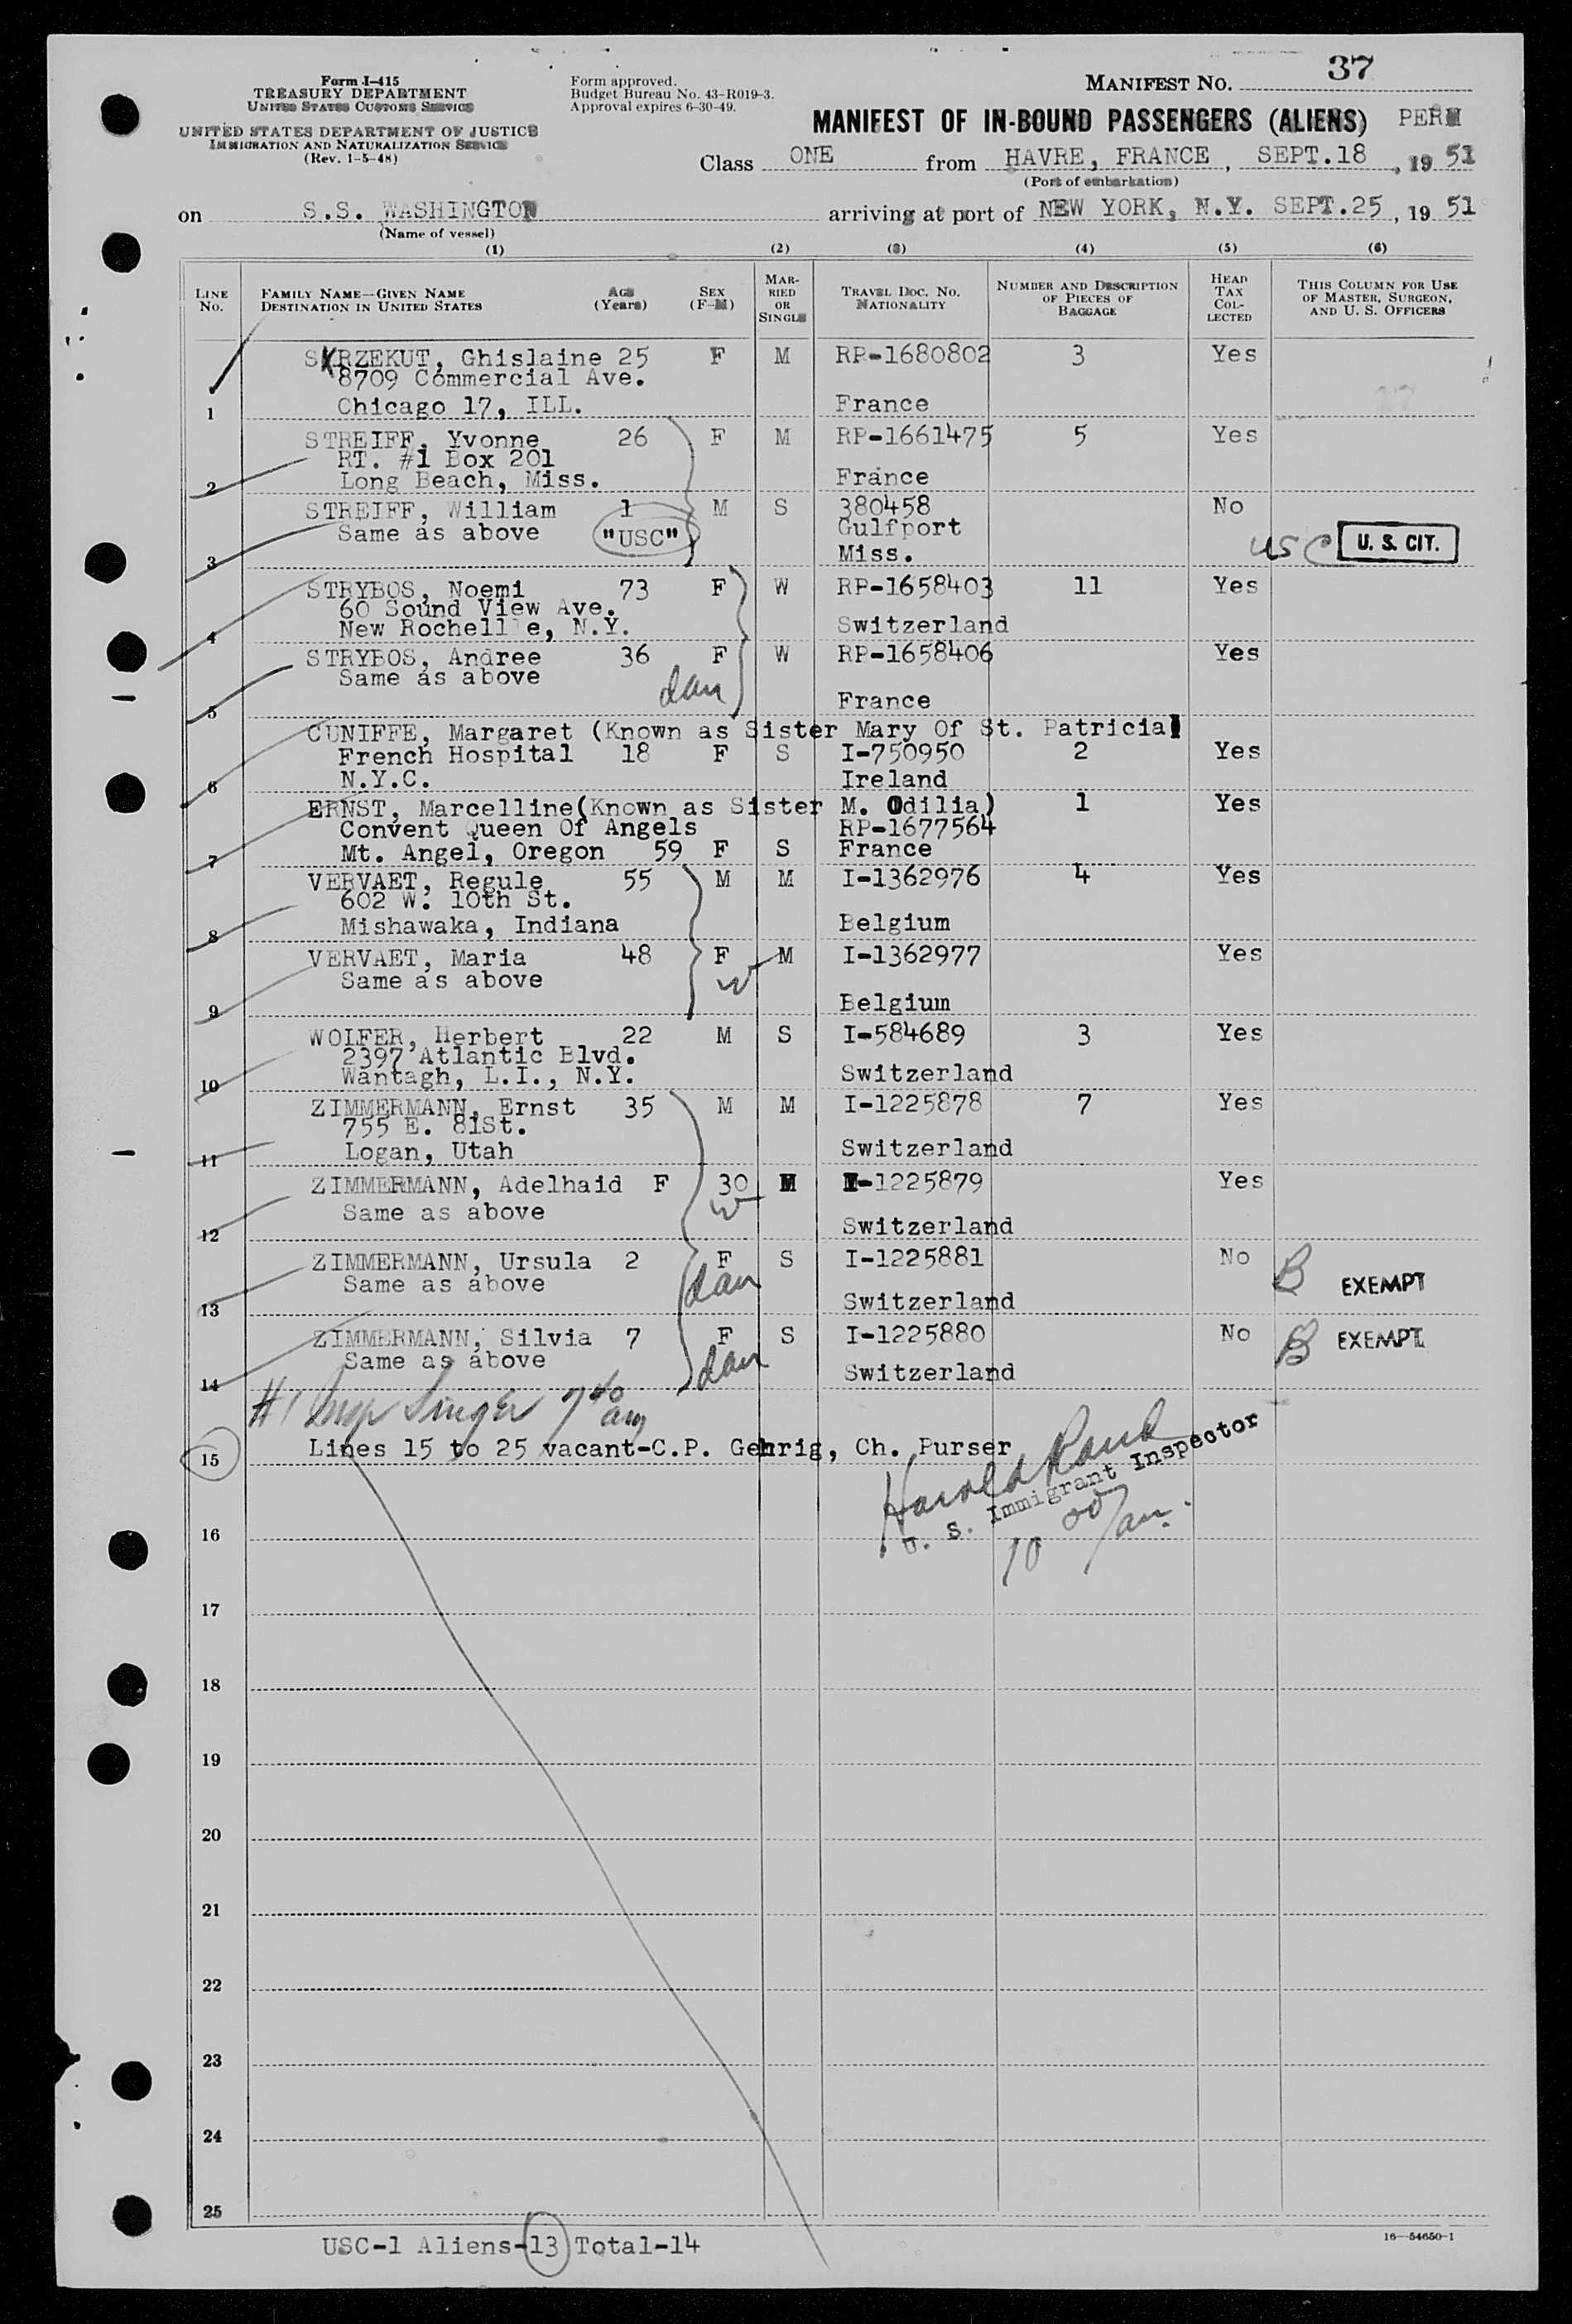 Form I-415
TREASURY DEPARTMENT
UNITED STATES CUSTOMS SERVICE
UNITED STATES DEPARTMENT OF JUSTICE
IMMIGRATION AND NATURALIZATION SERVICE
(Rev. 1-5-48)
Form approved.
Budget Bureau No. 43-R019-3.
Approval expires 6-30-49.
MANIFEST NO. 37
MANIFEST OF IN-BOUND PASSENGERS (ALIENS) PERM
Class ONE from HAVRE, FRANCE, SEPT.18, 19 51
(Port of embarkation)
on S.S. WASHINGTON arriving at port of NEW YORK, N.Y. SEPT.25, 19 51
(Name of vessel)
(1) (2) (3) (4) (5) (6)
LINE NO. FAMILY NAME—GIVEN NAME DESTINATION IN UNITED STATES AGE (Years) SEX (F-M) MARRIED OR SINGLE TRAVEL DOC. NO. NATIONALITY NUMBER AND DESCRIPTION OF PIECES OF BAGGAGE HEAD TAX COLLECTED THIS COLUMN FOR USE OF MASTER, SURGEON, AND U. S. OFFICERS
SKRZEKUT, Ghislaine 25 F M RP-1680802 3 Yes
8709 Commercial Ave.
1 Chicago 17, ILL. France
STREIFF, Yvonne 26 F M RP-1661475 5 Yes
RT. #1 Box 201
2 Long Beach, Miss. France
STREIFF, William 1 M S 380458 No
Same as above "USC" Gulfport usc U. S. CIT.
3 Miss.
STRYBOS, Noemi 73 F W RP-1658403 11 Yes
60 Sound View Ave.
4 New Rochelle, N.Y. Switzerland
STRYBOS, Andree 36 F W RP-1658406 Yes
Same as above
5 France
CUNIFFE, Margaret (Known as Sister Mary Of St. Patricia)
French Hospital 18 F S I-750950 2 Yes
6 N.Y.C. Ireland
ERNST, Marcelline(Known as Sister M. Odilia) 1 Yes
Convent Queen Of Angels RP-1677564
7 Mt. Angel, Oregon 59 F S France
VERVAET, Regule 55 M M I-1362976 4 Yes
602 W. 10th St.
8 Mishawaka, Indiana Belgium
VERVAET, Maria 48 F M I-1362977 Yes
Same as above W
9 Belgium
WOLFER, Herbert 22 M S I-584689 3 Yes
2397 Atlantic Blvd.
10 Wantagh, L.I., N.Y. Switzerland
ZIMMERMANN, Ernst 35 M M I-1225878 7 Yes
755 E. 81St.
11 Logan, Utah Switzerland
ZIMMERMANN, Adelhaid F 30 M I-1225879 Yes
Same as above W
12 Switzerland
ZIMMERMANN, Ursula 2 F S I-1225881 No B EXEMPT
Same as above dau
13 Switzerland
ZIMMERMANN, Silvia 7 F S I-1225880 No B EXEMPT
Same as above dau
14 Switzerland
#1 Insp Singer 7 40 am
15 Lines 15 to 25 vacant-C.P. Gehrig, Ch. Purser
Harold
U. S. Immigrant Inspector
10 00/am.
16
17
18
19
20
21
22
23
24
25
USC-1 Aliens-13 Total-14
16—54650-1